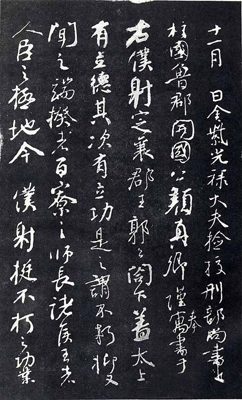 十一月 日金紫光祿大夫檢校刑部尚書上
柱國魯郡開國公顏真卿謹奉寓書于
右僕射定襄郡王郭公閤下蓋太上
有立德其次有立功是之謂不朽抑又
聞之端揆者百寮之師長諸侯王者
人臣之極地今 僕射挺不朽之功業